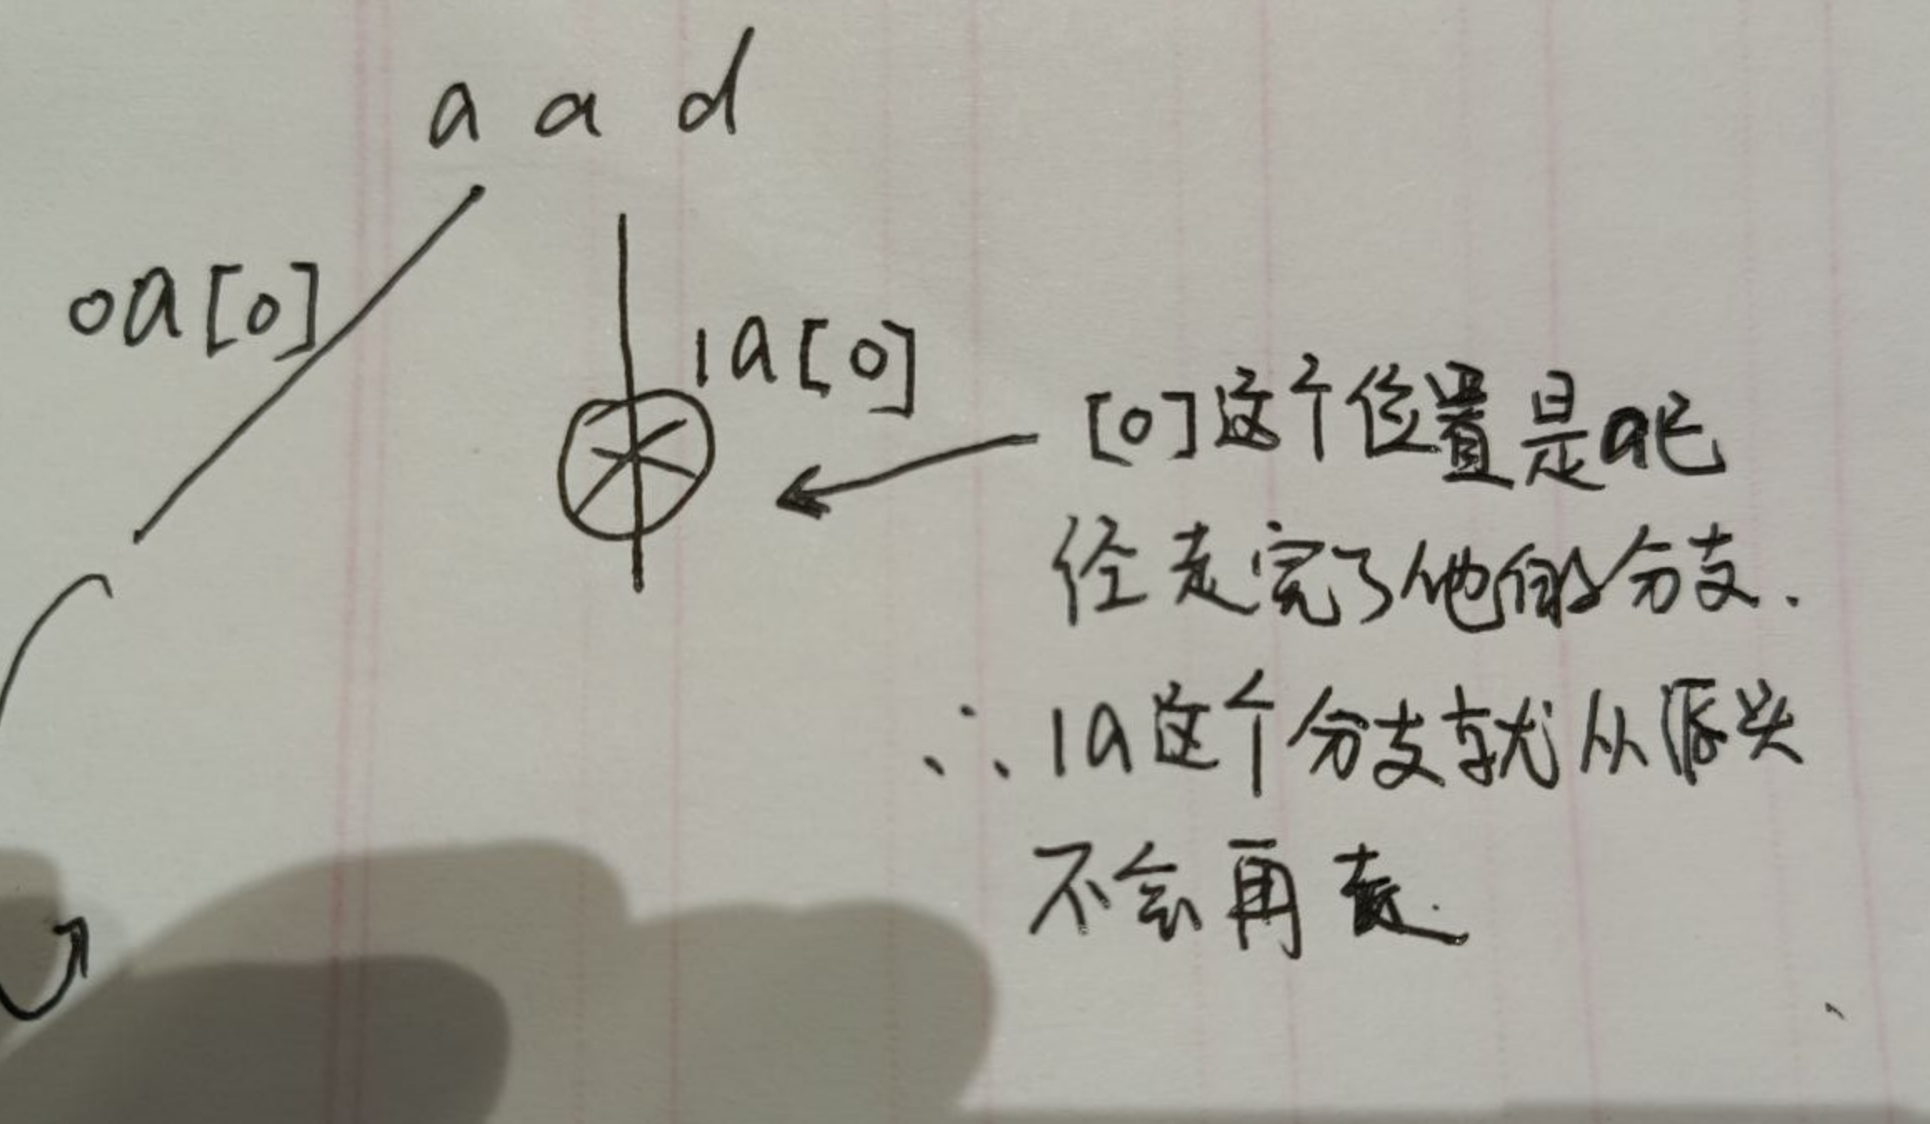 a a d
0a[0]
1a[0]
[0]这个位置是a已
经走完了他们的分支.
∴ 1a这个分支就从源头
不会再走.